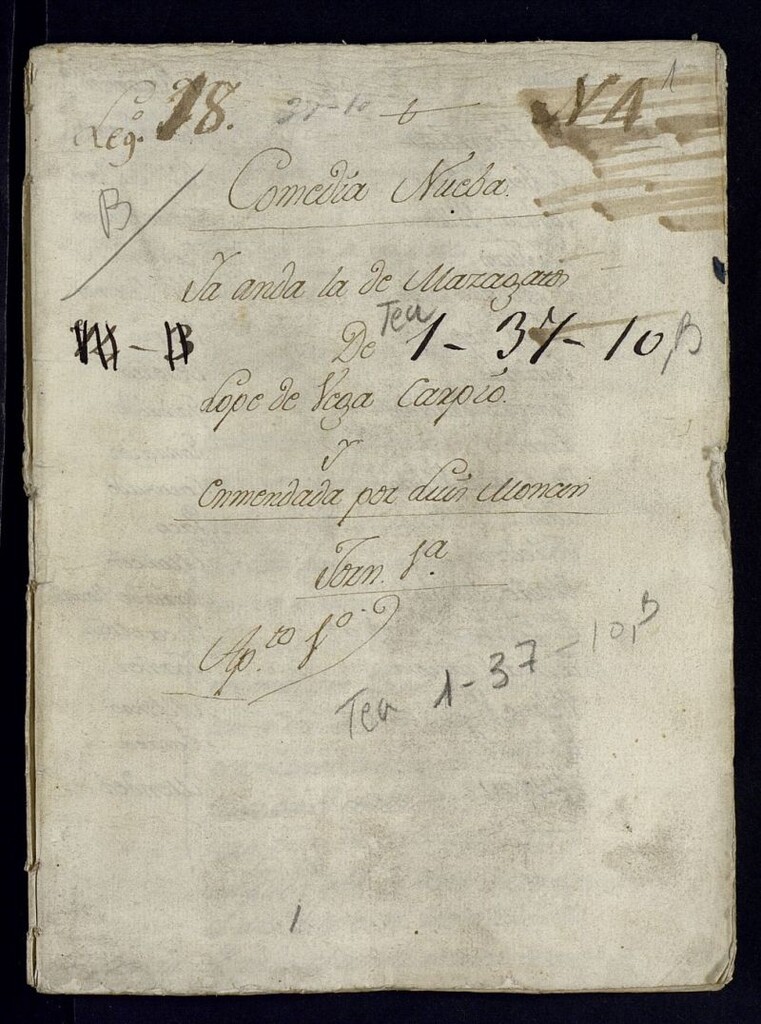 Leg.º 18. 37-10 6 N 4 1
B
Comedia Nueba.
Ya anda la de Mazagatos
Tea
De 1-37-10, B
Lope de Vega Carpio.
Y
Enmendada por Luis Moncin
Jorn. 1ª
Ap.to 1º
Tea 1-37-10, B
1